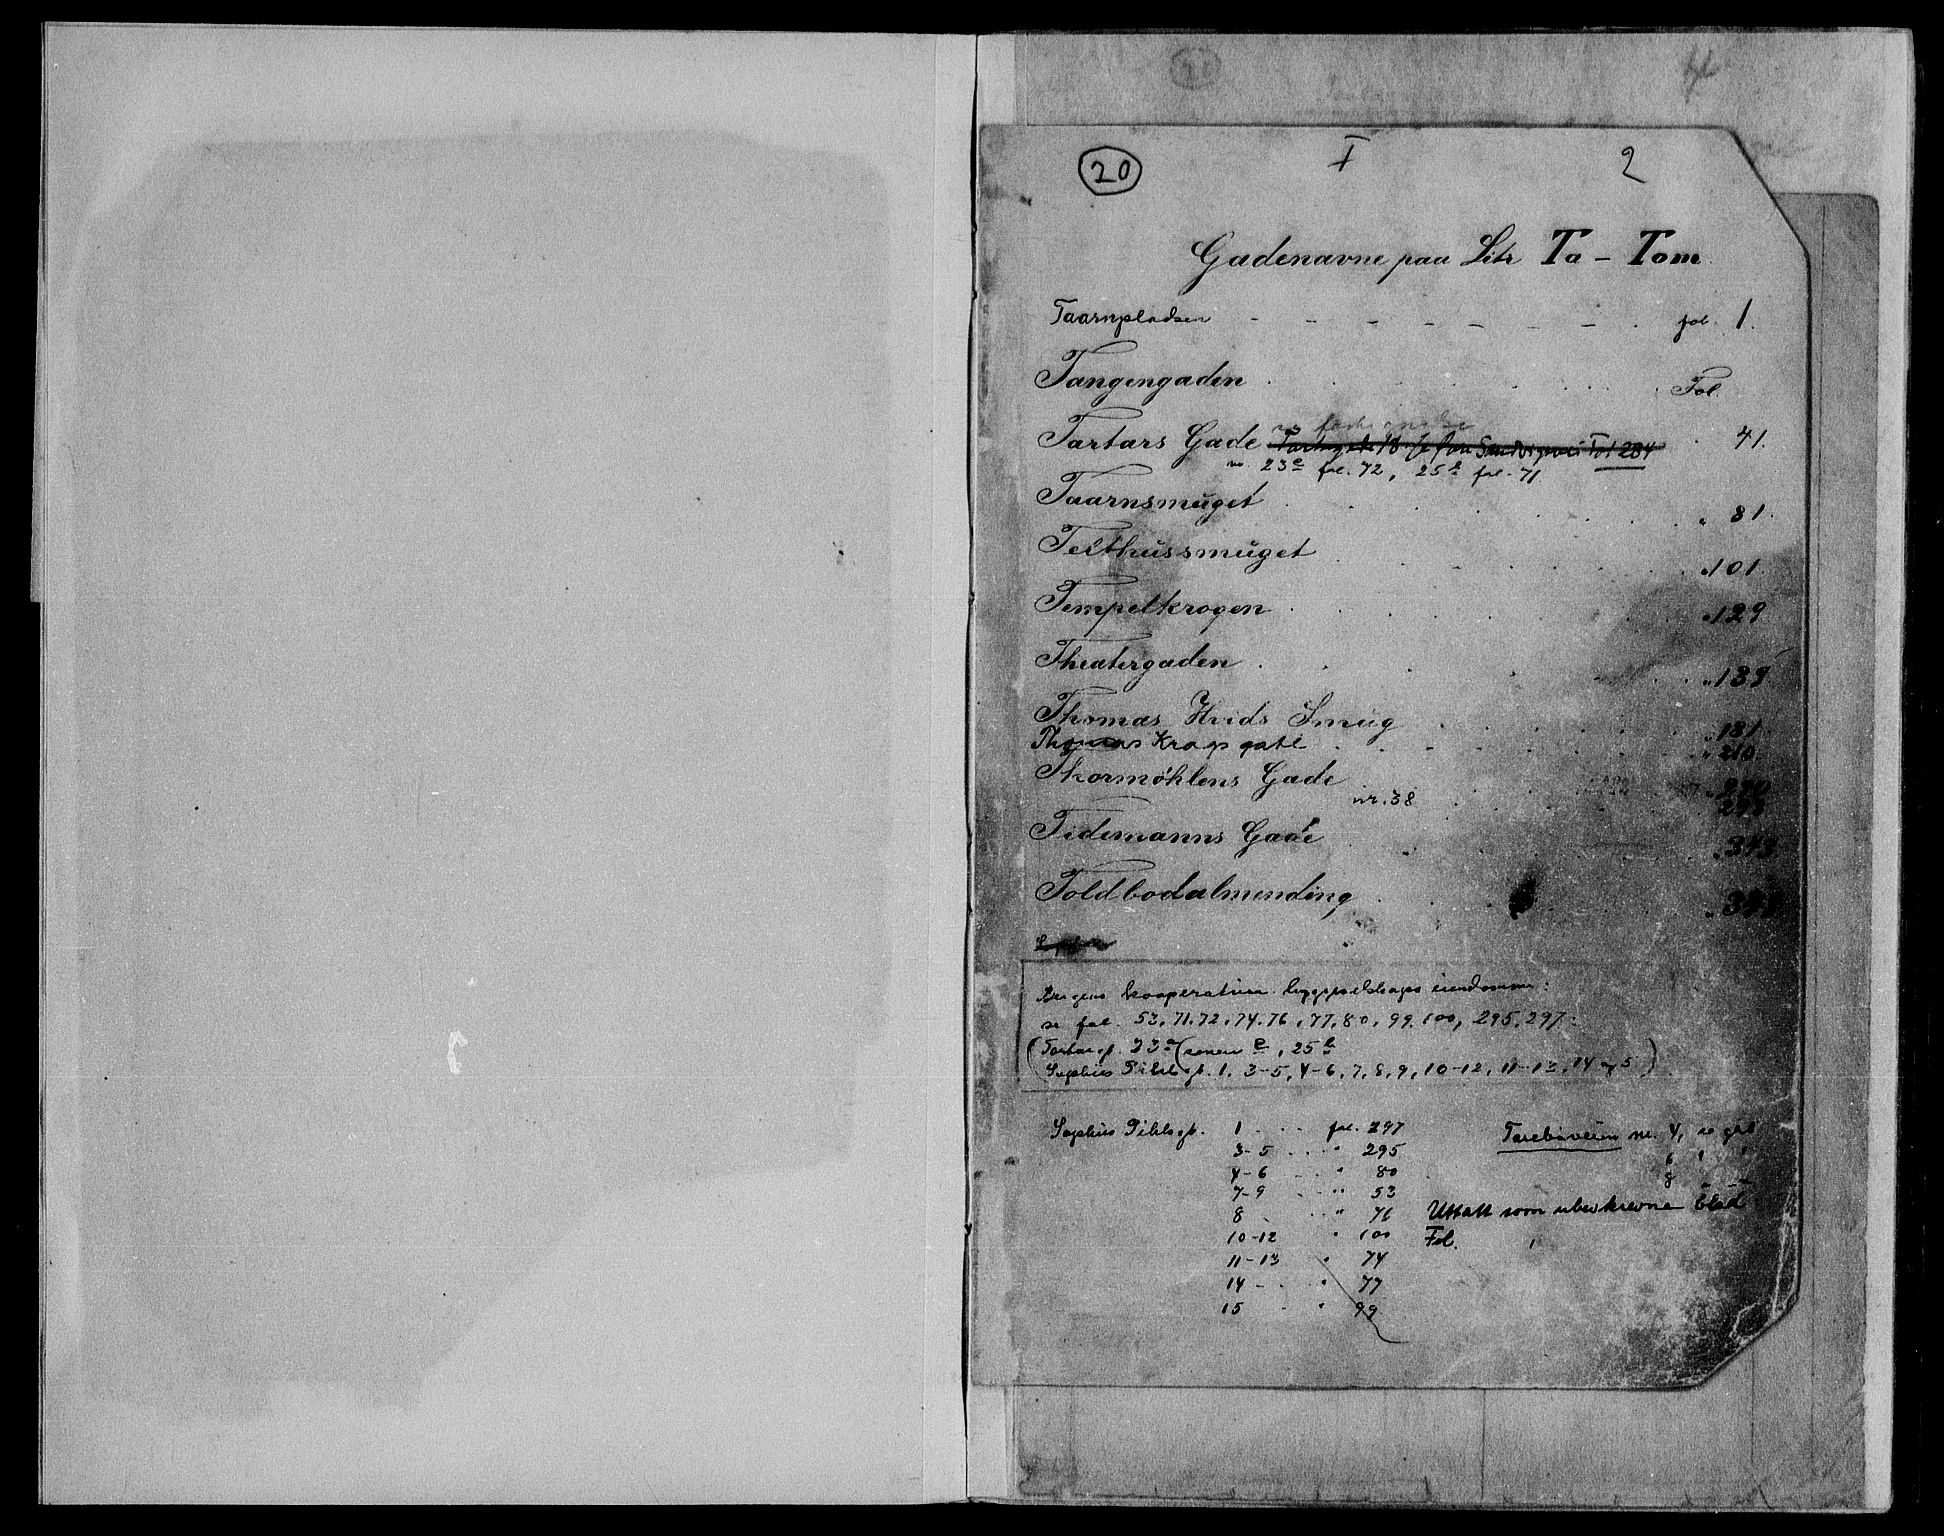 20 I 2
Gadenavne paa Litr Ta - Tom
Taarnpladsen fol. 1.
Tangengaden Fol.
Tartars Gade 41.
no. 23e fol. 72, 25b fol. 71
Taarnsmuget " 81.
Telthussmuget " 101
Tempelkrogen " 129
Theatergaden " 139
Thomas Hvids Smug " 181
Thomas Kraps gate " 210
Thormøhlens Gade " 220
nr. 38 295
Tidemanns Gade " 343
Toldbodalmending
Bergens kooperative byggeselskaps eiendommer:
se fol. 53, 71, 72, 74, 76, 77, 80, 99, 100, 295, 297:
(Tartarg. 23 e, 25b
Sophus Pihlsgt. 1, 3-5, 4-6, 7, 8, 9, 10-12, 11-13, 14 og 5)
Sophus Pihlsgt. 1 fol. 297
3-5 " 295
4-6 " 80
7-9 " 53
8 " 76
10-12 " 100
11-13 " 74
14 " 77
15 " 99
nr. 4, se
6 "
8
Uttatt som ubeskrevne blad
Fol.